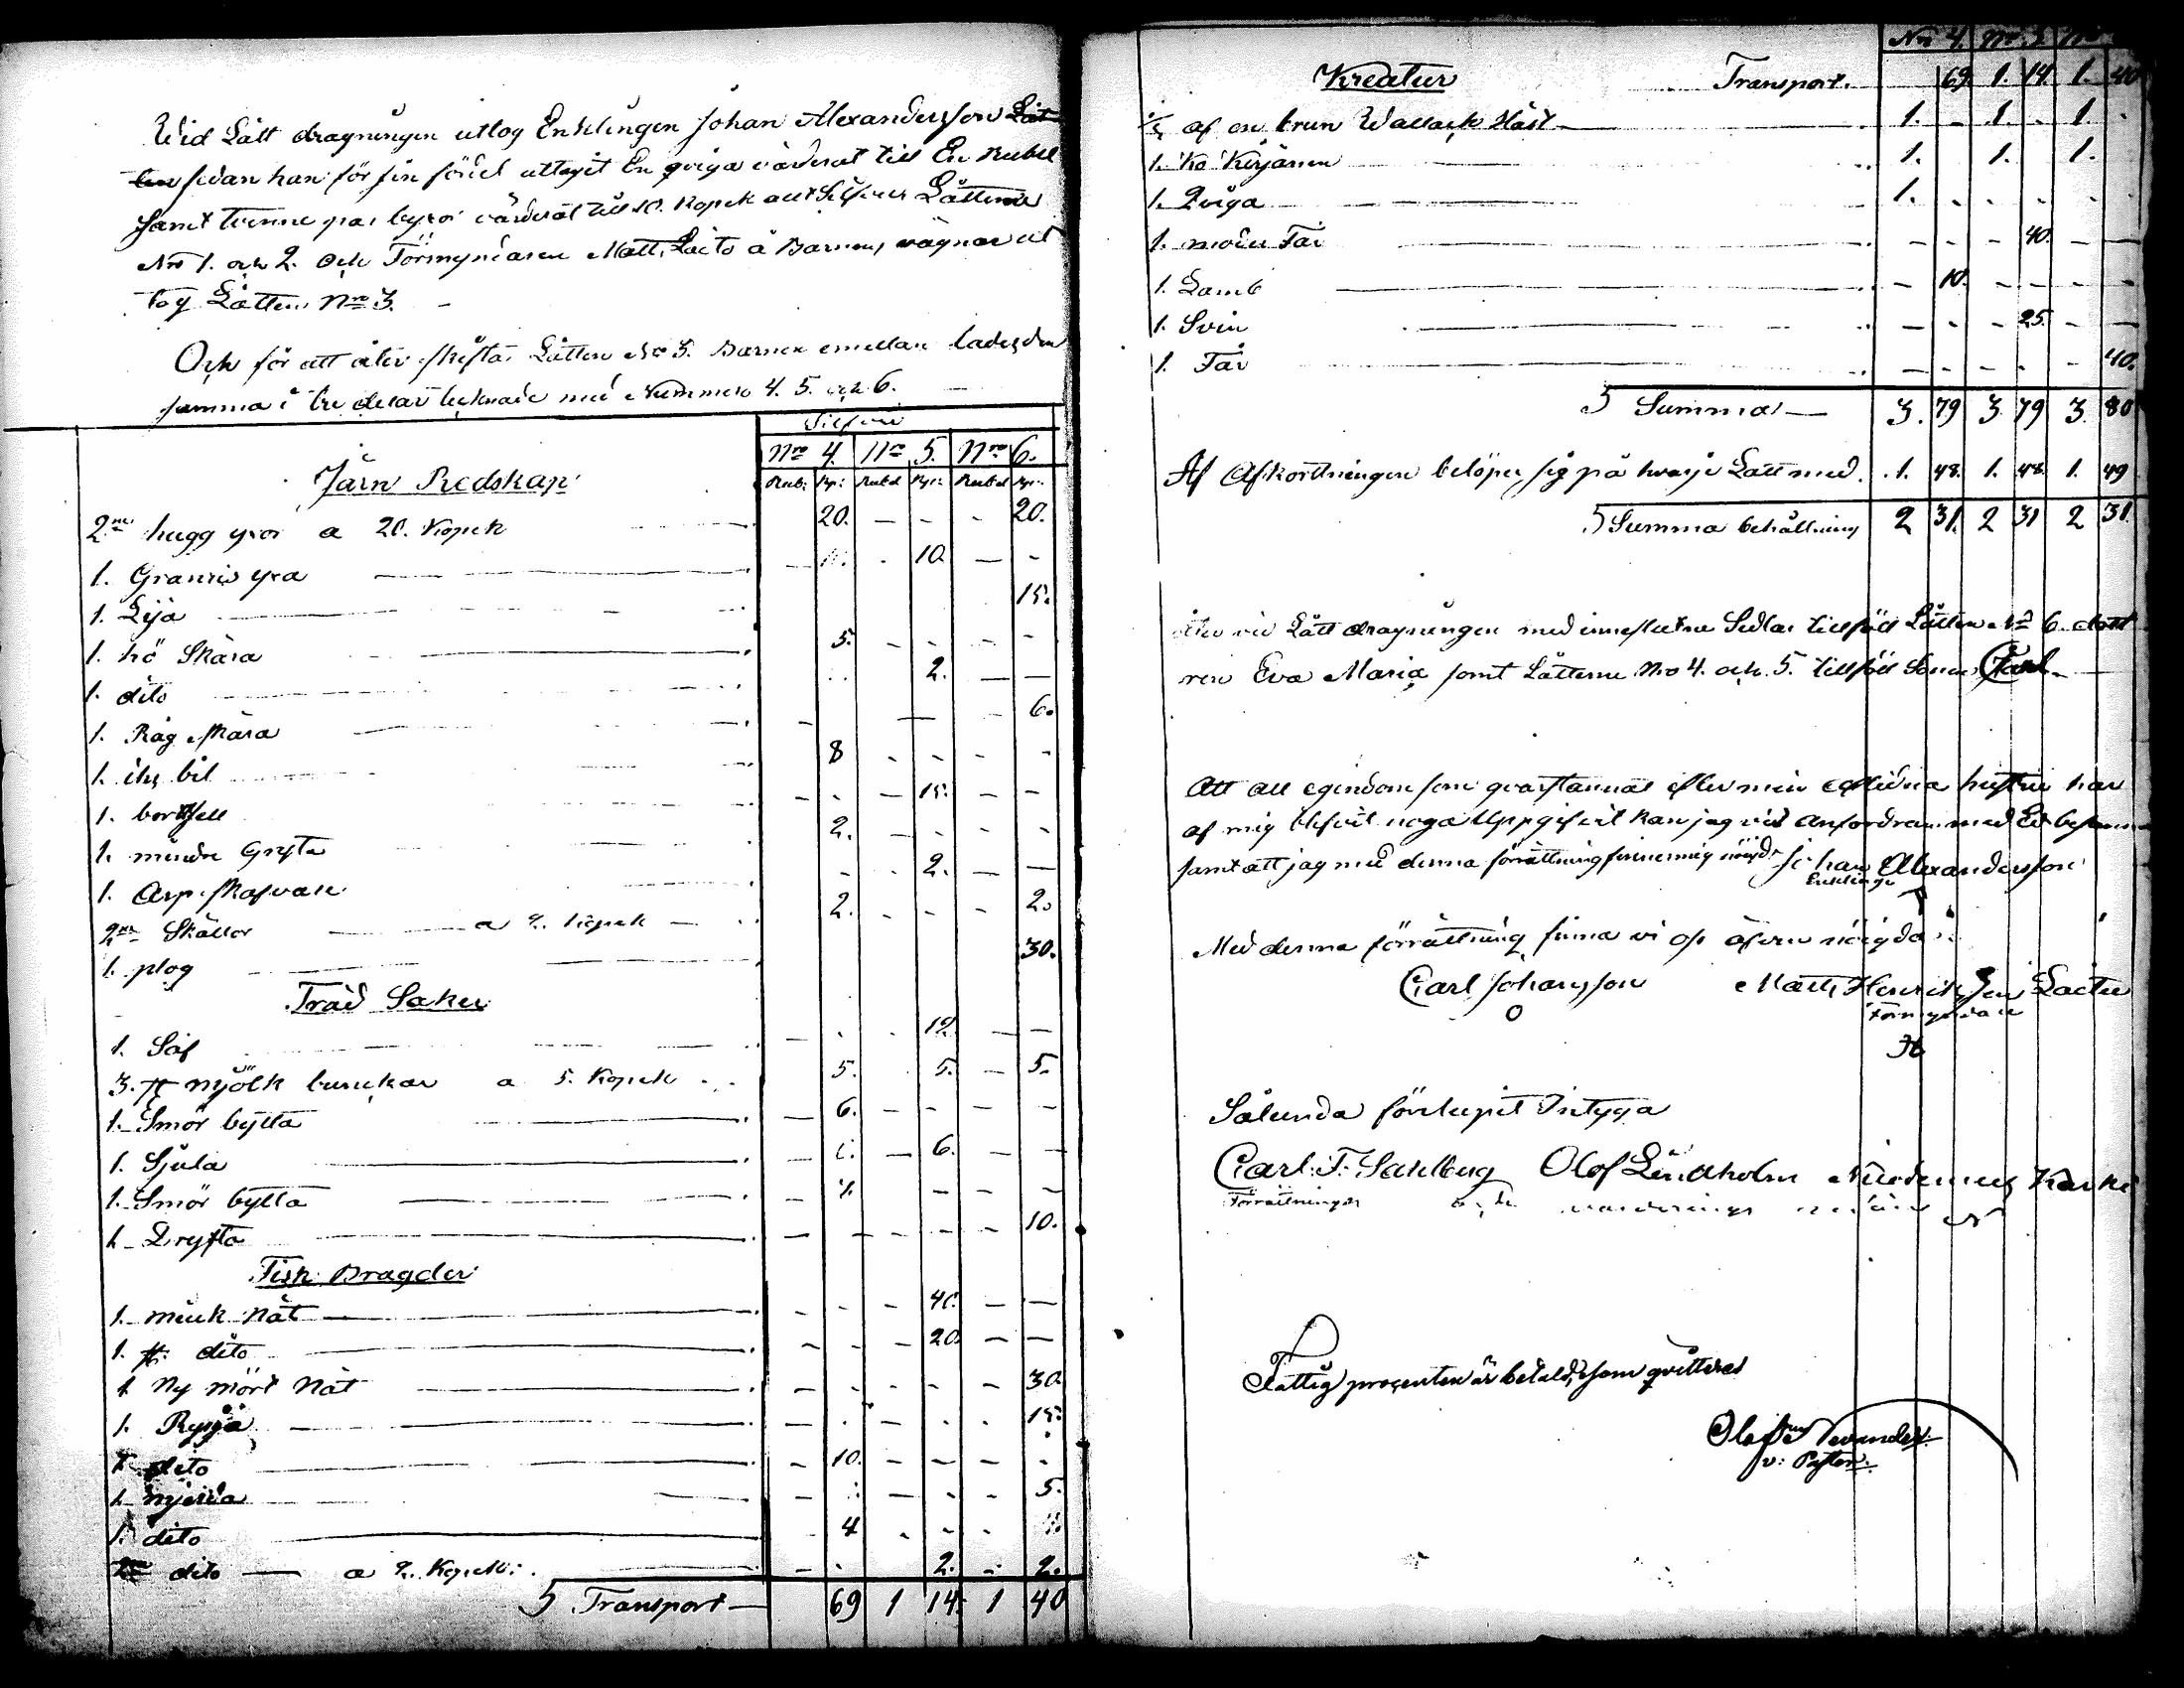 Wid Lått dragningen uttog Enklingen Johan Alexandersson Låt
ten sedan han för sin fördel uttagit En qviga värderat till En Rubel
samt tvenne par byxor värderat till 10. Kopek allt Silfver Låtterne
Nro 1. och 2. Och Förmyndaren Matt. Laito å Barnens vägnar ut
tog Låtten Nro 3.
Och för att åter skifta Låtten No 3. Barnen emellan lades den
samma i tre delar tecknade med Nummern 4. 5. och 6.
Silfver
Nro 4. Nro 5. Nro 6.
Järn Redskap Rub: Kp: Rubel Kp: Rubel Kp:
2ne hugg yxor a 20. Kopek 20. — - - 20.
1. Granris yxa — 10. — -
1. Lija 15.
1. hö Skära 5. - - - -
1. dito 2. — —
1. Råg skära - — - 6.
1. bil 8 - - - -
1. 15. - -
1. mindre Gryta 2. — - - -
1. 2. — —
2ne Skällor a 2. Kopek 2. - - - 2.
1. plog 30.
Träd Saker
1. Såf 12 — —
3. st mjölk bunkar a 5. Kopek 5. 5. — 5.
1. Smör bytta — 6. - - - -
1. Sjula — 6. — —
1. Smör bytta - — - -
1. Dryfta 10.
Fisk Bragder
1. Nät - - - 40. — —
1. st. dito - - - 20. — —
1 Ny mört Nät - - - - - 30.
1. Ryssja 15.
1. dito - 10. - - - -
1. mjärda 5.
1. dito 4 - - -
2ne dito — a 2. Kopek: 2. - 2.
S Transport — 69 1 14. 1 40
Nro 4. Nro 5. Nro
Kreatur Transport. 69. 1. 14. 1. 40
af en brun Wallack Häst — 1. - 1. - 1. -
1. Ko Kirjänen 1. 1. 1.
1. Qviga 1. - - - - -
1. moder Får - - - 40. — —
1. Lamb - 10. - - - -
1. Svin - - - 25. - —
1. Får - - - - - 40.
S Summa — 3. 79 3 79 3. 80
Af Afkortningen belöper sig på hvarje Lått med. 1. 48. 1. 48. 1. 49
S Summa behållning 2 31. 2 31 2 31.
åter vid Lått dragningen med inneslutne Sedlar tillföll Låtten No 6 dott
ren Eva Maria samt Låtterne No 4. och 5. tillföll Sonen Carl.
Att all egendom som qvarstannat efter min aflidna hustru har
af mig blifvit noga Uppgifvit kan jag vid anfordran med Ed
samt att jag med denna förrättning finner mig nöjd. Johan Alexandersson
Enklinge
Med denna förrättning finna vi oss äfven nöigda
Carl Johansson Matts Henriksson Laito
Förmyndare
Sålunda förelupit Intyga
Carl. F. Sahlberg Olof Lindholm Karki
Förrättnings värderings män
Fattig procenten är betald, som qvitteras
v: Pastor.